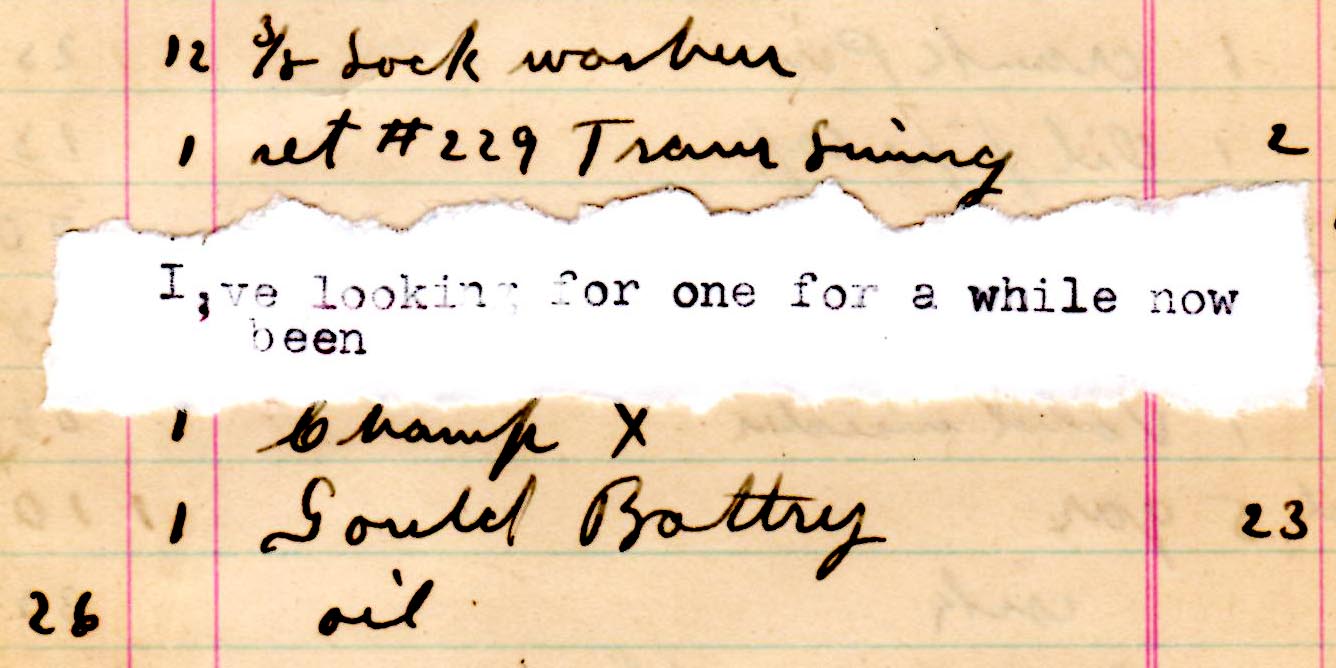 12 3/8 Lock washers
1 set #229 Trans Lining 2
I,ve looking for one for a while now
been
1 Champ X
1 Gould Battry 23
26 oil